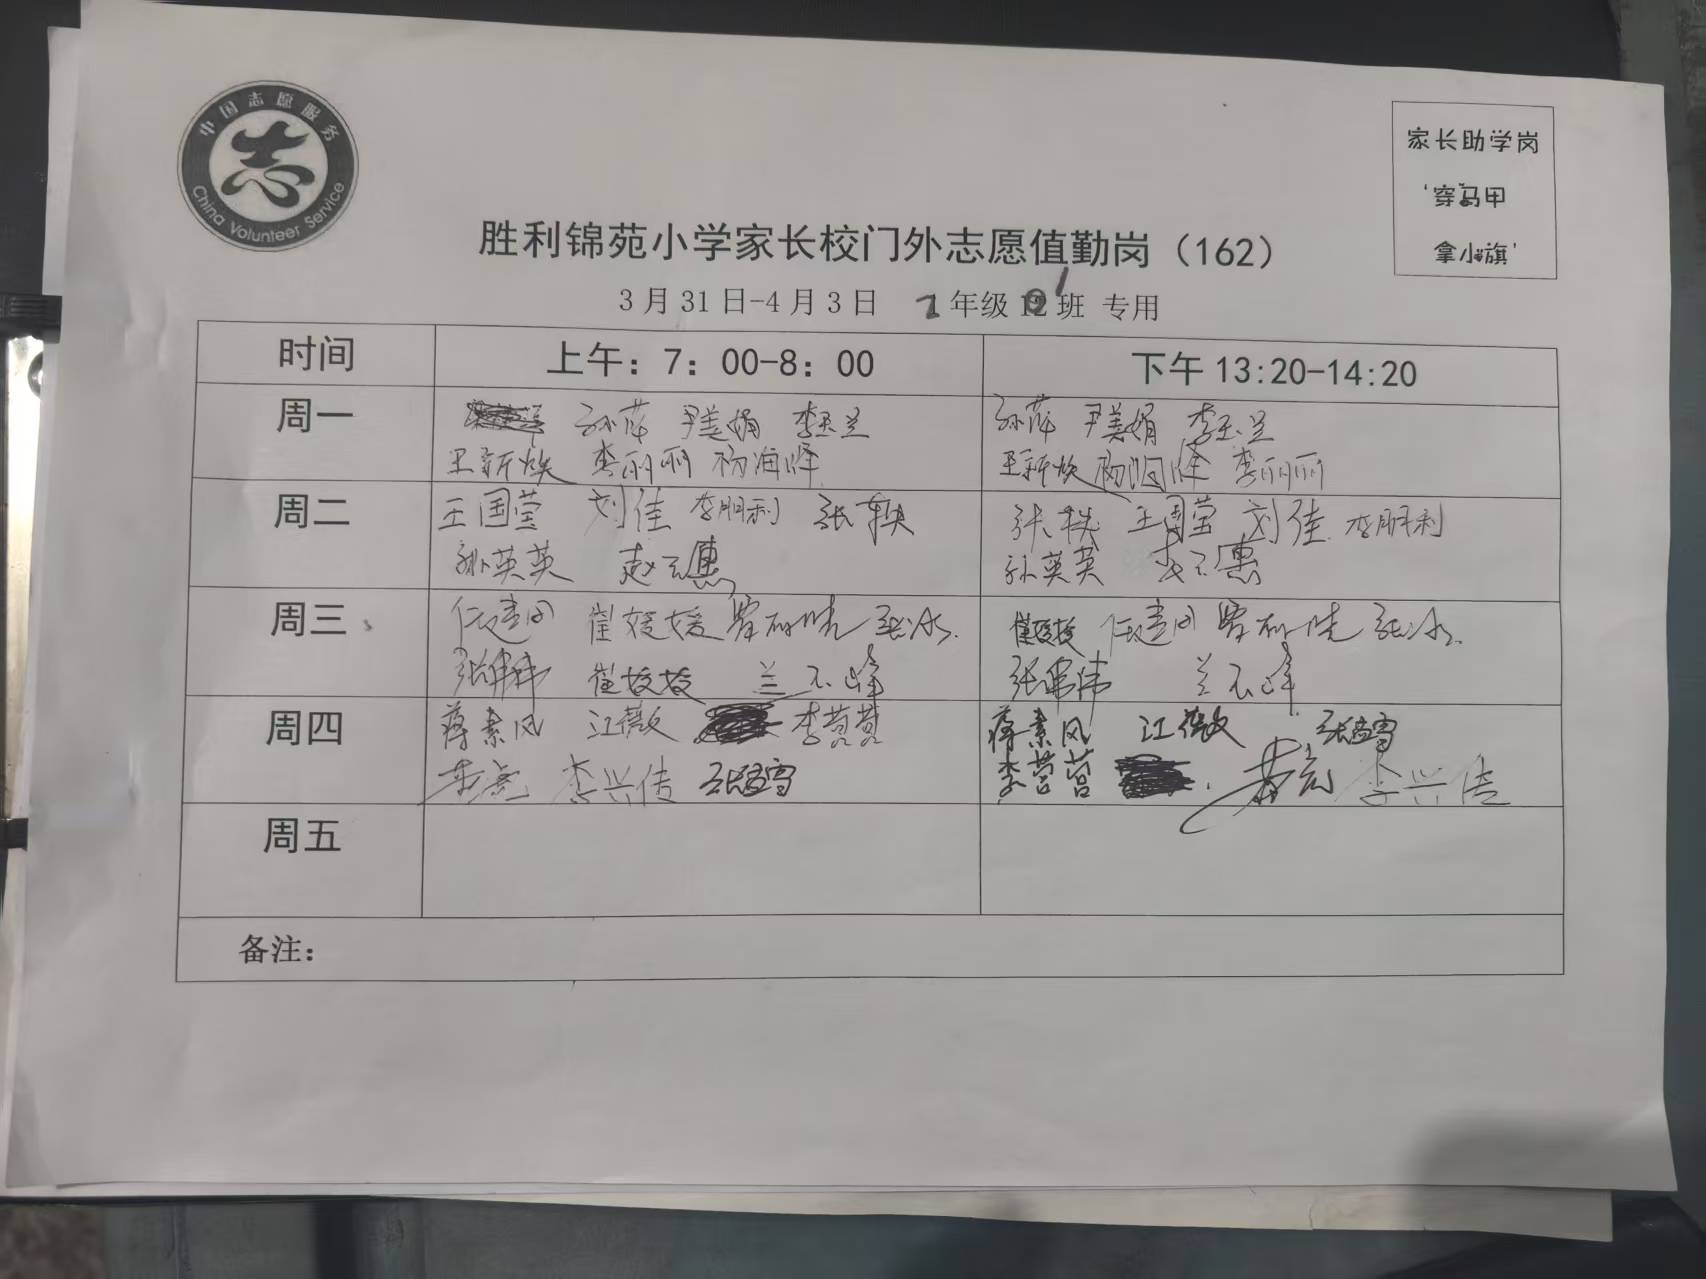 中国志愿服务
志
China Volunteer Service
家长助学岗
'穿马甲
拿小旗'
胜利锦苑小学家长校门外志愿值勤岗（162）
3月31日-4月3日 年级 班 专用
时间 上午：7：00-8：00 下午13:20-14:20
周一 孙萍 尹美娟 李玉兰 孙萍 尹美娟 李玉兰
王新焕 李丽丽 杨海峰 王新焕 杨海峰 李丽丽
周二 王国莹 刘佳 李朋利 张轶 张轶 王国莹 刘佳 李朋利
孙英英 赵云惠 孙英英 惠
周三 任建 崔媛媛 张冰 崔媛媛 任建 张冰
张伟伟 崔媛媛 兰 峰 张伟伟 兰 峰
周四 蒋素风 江薇 李营营 蒋素风 江薇 张雪
李兴佳 张雪 李营营 李兴佳
周五
备注：